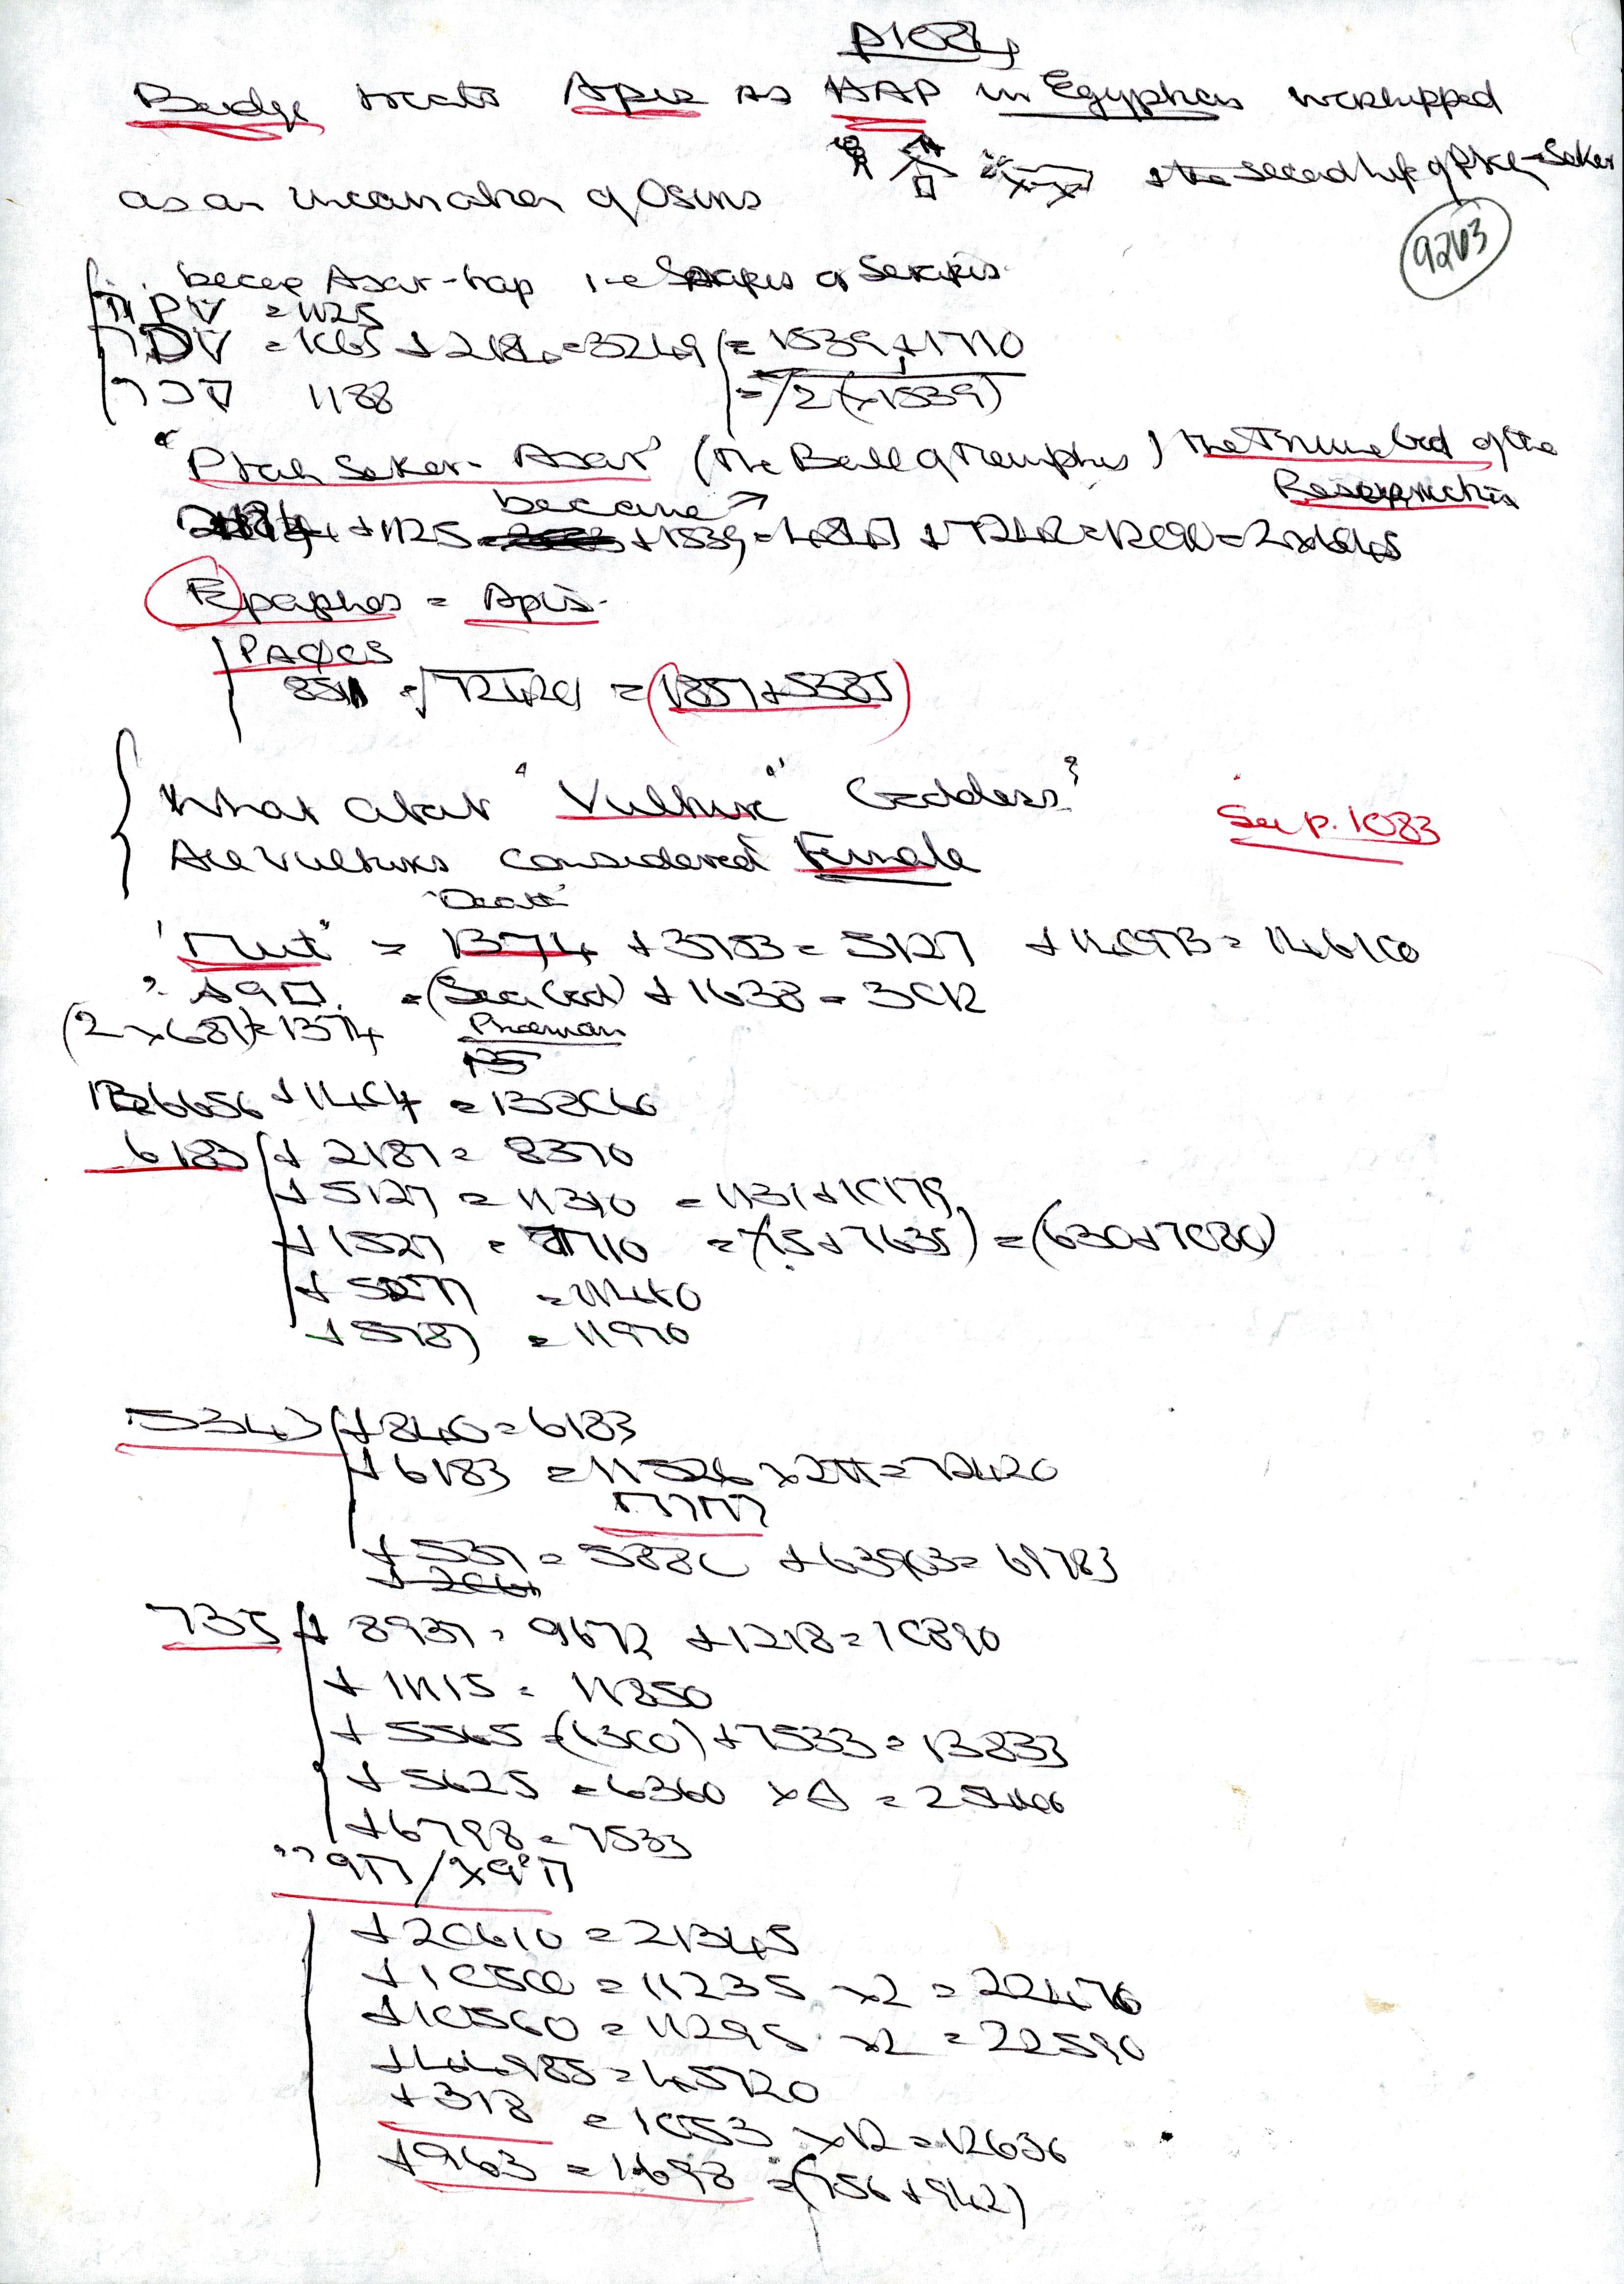 p1084
Budge treats Apis as HAP in Egyptian worshipped
as an incarnation of Osiris the second life of Ptah-Seker
9263
became Asar-hap i-e Sarapis or Serapis
= 1125
= 1065 + 2184 = 3249 = 1539 + 1710
1188 = /2 (x1539)
"Ptah Seker-Asar" (the Bull of Memphis) the Triune God of the
became → Resurrection
+ 1125 + 1539 = 4848 + 7242 = 12090 = 2x6045
Epaphos = Apis.
ΠΑΦΟΣ
851 = √72420 = (1857+5385)
What about "Vulture" Goddess?
All Vultures considered Female
See p. 1083
'Death'
'Mut' = 1374 + 3753 = 5127 + 140973 = 146100
= (Sea God) + 1638 = 3012
(2 x 687) = 1374
136656 + 1404 = 138060
6183 + 2187 = 8370
+ 5127 = 11310 = 1131 + 10179
+ 1527 = 7710 = (75 + 7635) = (630 + 7080)
+ 5277 = 11460
+ 5787 = 11970
5343 + 840 = 6183
+ 6183 = 11526 x 2π = 72420
+ 537 = 5880 + 63903 = 69783
735 + 8937 = 9672 + 1218 = 10890
+ 11115 = 11850
+ 5565 = (6300) + 7533 = 13833
+ 5625 = 6360 x 4 = 25440
+ 6798 = 7533
+ 20610 = 21345
+ 10500 = 11235 x2 = 22470
+ 10560 = 11295 x2 = 22590
+ 44985 = 45720
+ 318 = 1053 x 12 = 12636
+ 963 = 1698 = (756 + 942)